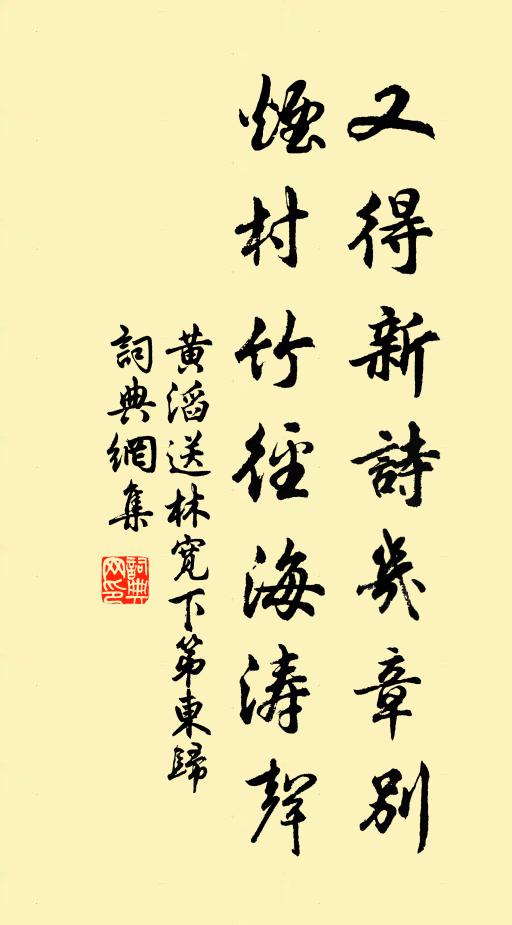 又得新詩幾章別
煙村竹徑海濤聲
黃滔送林寬下第東歸
詞典網集
詞典网印